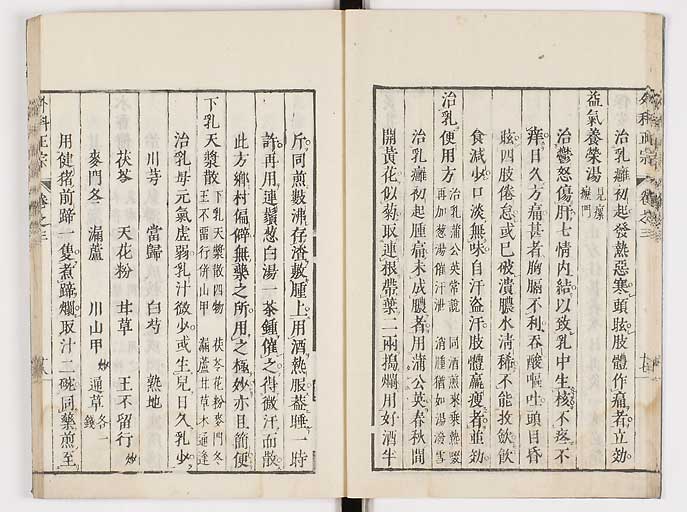 外科正宗 卷之三
治乳癰初起發熱惡寒頭眩肢體作痛者立効
益氣養榮湯 見瘰癧門
治鬱怒傷肝七情內結以致乳中生核不疼不
痒日久方痛甚者胸膈不利吞酸嘔吐頭目昏
眩四肢倦怠或已破潰膿水清稀不能收歛飲
食減少口淡無味自汗盗汗肢體羸瘦者並効
治乳便用方 治乳蒲公英常說 同酒煎來乗熱啜 再加葱湯催汗泄 消腫猶如湯潑雪
治乳癰初起腫痛未成膿者用蒲公英春秋間
開黄花似菊取連根帶葉二兩搗爛用好酒半
斤同煎數沸存渣敷腫上用酒熱服葢睡一時
許再用連鬚葱白湯一茶鍾催之得微汗而散
此方鄉村偏僻無藥之所用之極妙亦且簡便
下乳天漿散 下乳天漿散四物 茯苓花粉麥門冬 王不留行併山甲 漏蘆甘草木通逢
治乳母元氣虛弱乳汁微少或生兒日久乳少
川芎 當歸 白芍 熟地
茯苓 天花粉 甘草 王不留行 炒
麥門冬 漏蘆 川山甲 炒 通草 各一錢
用健猪前蹄一隻煮蹄爛取汁二碗同藥煎至
外科正宗 卷之三